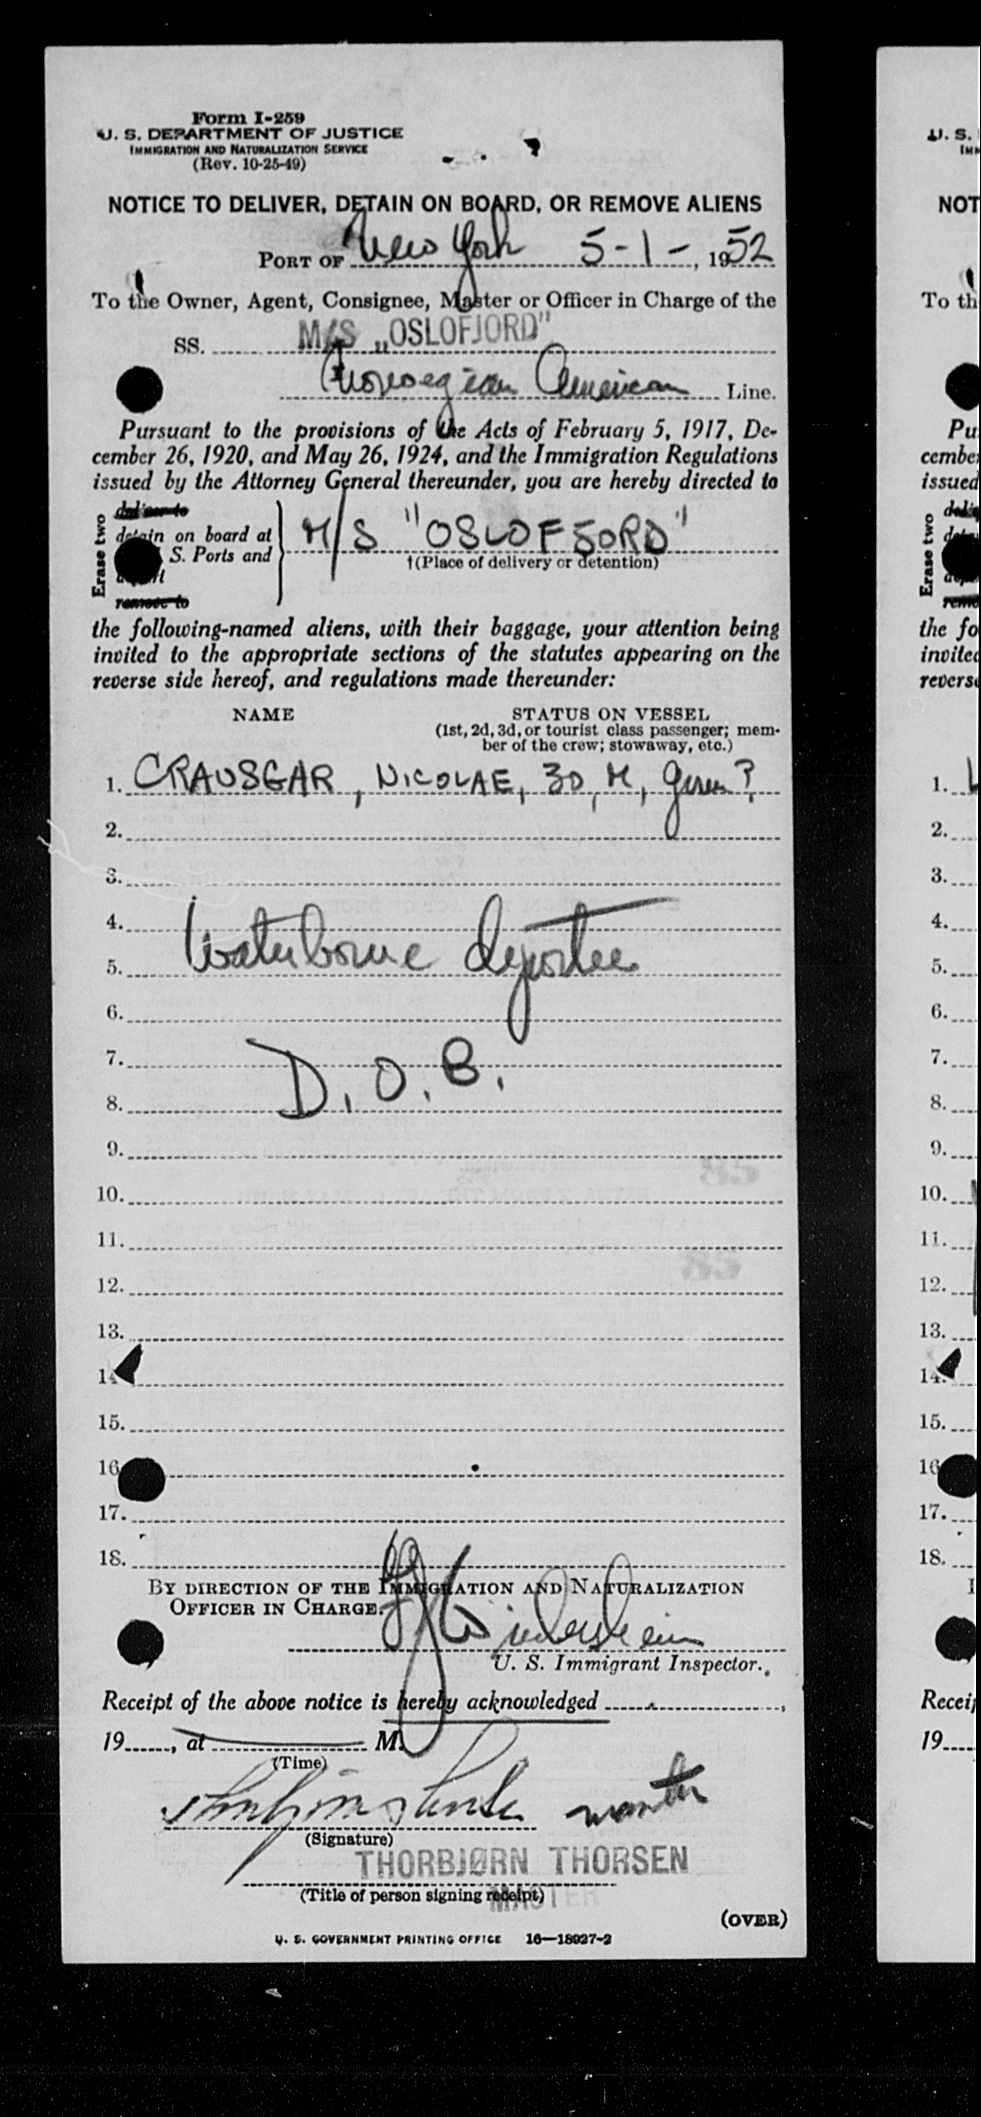 Form I-259
U. S. DEPARTMENT OF JUSTICE
IMMIGRATION AND NATURALIZATION SERVICE
(Rev. 10-25-49)
NOTICE TO DELIVER, DETAIN ON BOARD, OR REMOVE ALIENS
PORT OF New York 5-1-, 1952
To the Owner, Agent, Consignee, Master or Officer in Charge of the
SS. M/S „OSLOFJORD"
Norwegian American Line.
Pursuant to the provisions of the Acts of February 5, 1917, De-
cember 26, 1920, and May 26, 1924, and the Immigration Regulations
issued by the Attorney General thereunder, you are hereby directed to
Erase two
deliver to
detain on board at
S. Ports and
remove to
M/S "OSLOFJORD"
†(Place of delivery or detention)
the following-named aliens, with their baggage, your attention being
invited to the appropriate sections of the statutes appearing on the
reverse side hereof, and regulations made thereunder:
NAME
STATUS ON VESSEL
(1st, 2d, 3d, or tourist class passenger; mem-
ber of the crew; stowaway, etc.)
1. CRAUSGAR, NICOLAE, 30, M, Germ?
2.
3.
4.
Waterborne deportee
5.
6.
7.
D.O.B.
8.
9.
85
10.
11.
85
12.
13.
14
15.
16
17.
18.
BY DIRECTION OF THE IMMIGRATION AND NATURALIZATION
OFFICER IN CHARGE.
U. S. Immigrant Inspector.
Receipt of the above notice is hereby acknowledged
19......, at M.
(Time)
master
(Signature)
THORBJØRN THORSEN
MASTER
(Title of person signing receipt)
(OVER)
U. S. GOVERNMENT PRINTING OFFICE 16—18927-2
U. S.
NOT
To th
Pu
cembe
issued
Erase two
the fo
invited
revers
1.
2.
3.
4.
5.
6.
7.
8.
9.
10.
11.
12.
13.
14.
15.
16
17.
18.
Recei
19